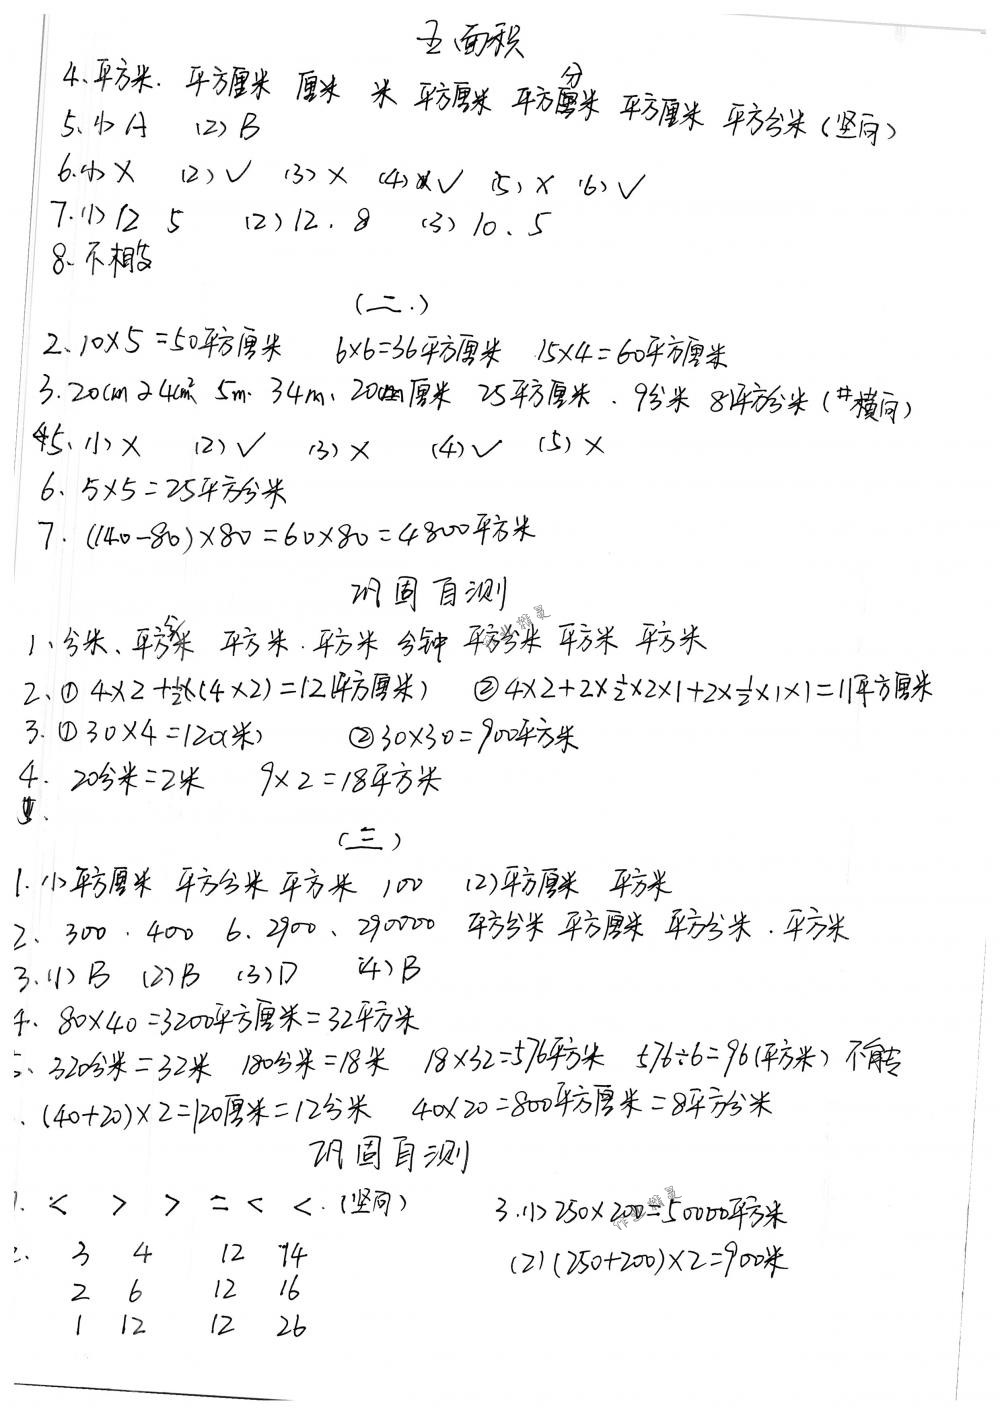 五面积
4、平方米. 平方厘米 厘米 米 平方厘米 平方分米 平方厘米 平方分米(竖向)
5、(1) A (2) B
6.(1) × (2) √ (3) × (4) √ (5) × (6) √
7.(1) 12 5 (2) 12. 8 (3) 10、5
8、不相等
(二.)
2、10×5=50平方厘米 6×6=36平方厘米 15×4=60平方厘米
3.20cm 24cm² 5m. 34m、20厘米 25平方厘米、9分米 81平方分米(横向)
5、(1) × (2) √ (3) × (4) √ (5) ×
6、5×5=25平方分米
7. (140-80)×80=60×80=4800平方米
巩固自测
1、分米、平方分米 平方米.平方米 分钟 平方分米 平方米 平方米
2、① 4×2+½×(4×2)=12(平方厘米) ②4×2+2×½×2×1+2×½×1×1=11平方厘米
3.①30×4=120(米) ②30×30=900平方米
4. 20分米=2米 9×2=18平方米
(三)
1.(1)平方厘米 平方分米 平方米 100 (2)平方厘米 平方米
2、300.400 6、2900、290000 平方分米 平方厘米 平方分米.平方米
3.(1) B (2) B (3) D (4) B
4. 80×40=3200平方厘米=32平方米
5、320分米=32米 180分米=18米 18×32=576平方米 576÷6=96(平方米) 不能
、(40+20)×2=120厘米=12分米 40×20=800平方厘米=8平方分米
巩固自测
1. < > > = < <.(竖向)
3.(1)250×200=50000平方米
2. 3 4 12 14
(2)(250+200)×2=900米
2 6 12 16
1 12 12 26